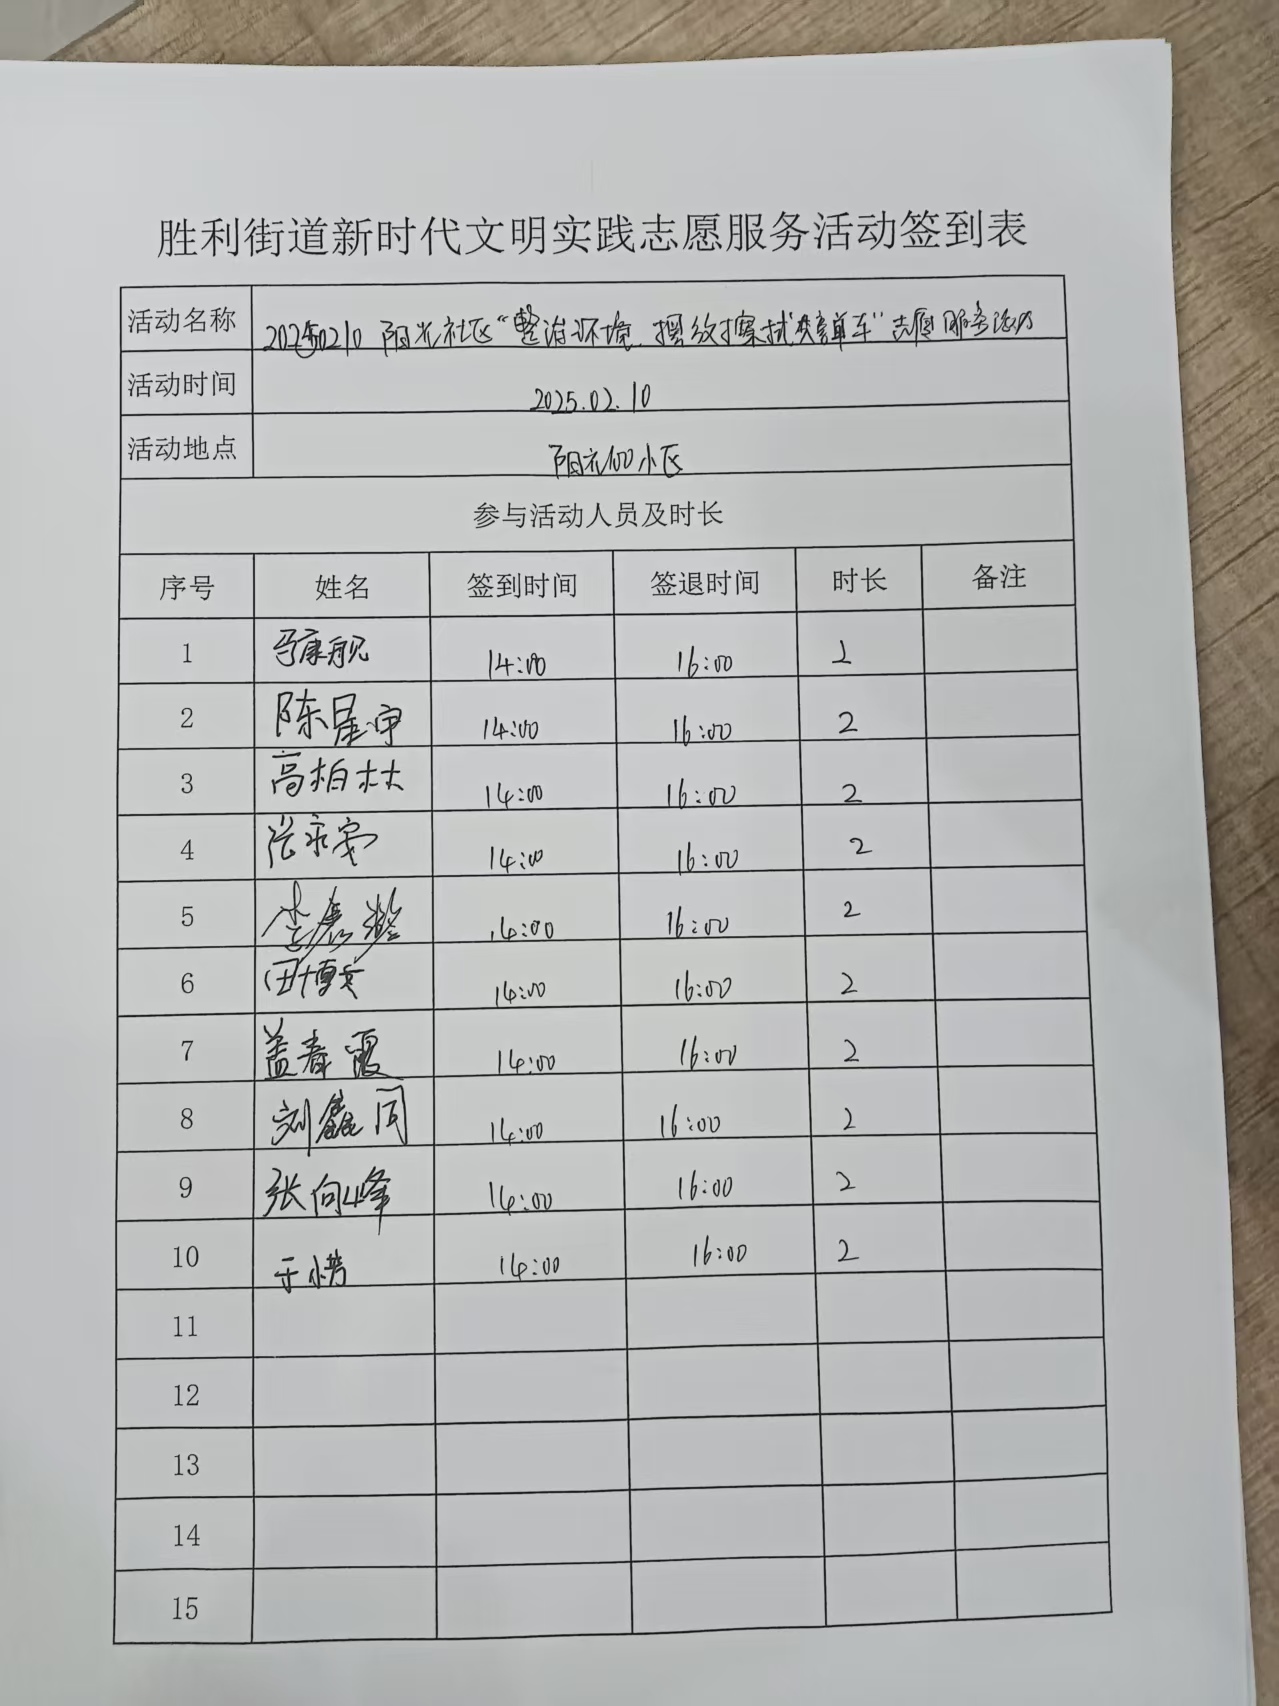 胜利街道新时代文明实践志愿服务活动签到表
活动名称 20250210 阳光社区“整治环境、摆放擦拭共享单车”志愿服务活动
活动时间 2025.02.10
活动地点 阳光100小区
参与活动人员及时长
序号 姓名 签到时间 签退时间 时长 备注
1 马康舰 14:00 16:00 2
2 陈星宇 14:00 16:00 2
3 高柏林 14:00 16:00 2
4 14:00 16:00 2
5 14:00 16:00 2
6 田博文 14:00 16:00 2
7 盖春霞 14:00 16:00 2
8 刘鑫同 14:00 16:00 2
9 张向峰 14:00 16:00 2
10 14:00 16:00 2
11
12
13
14
15